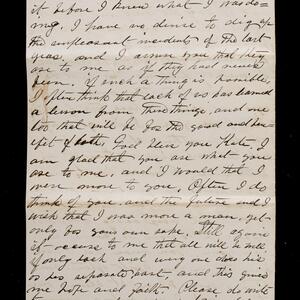 it before I knew what I was do-
ing. I have no desire to dig up
the unpleasant incidents of the last
year, and I assure you that they
are to me as if they had never
been. If such a thing is possible,
I often think that each of us has learned
a lesson from these things, and one
too that will be for the good and ben-
efit of both. God bless you Kate, I
am glad that you are what you
are to me, and I would that I
were more to you. Often I do
think of you and the future and I
wish that I was more a man, yet
only for your own sake. Still again
it occurs to me that all will be well
if only each and every one does his
or her separate part, and this gives
me hope and faith. Please do write